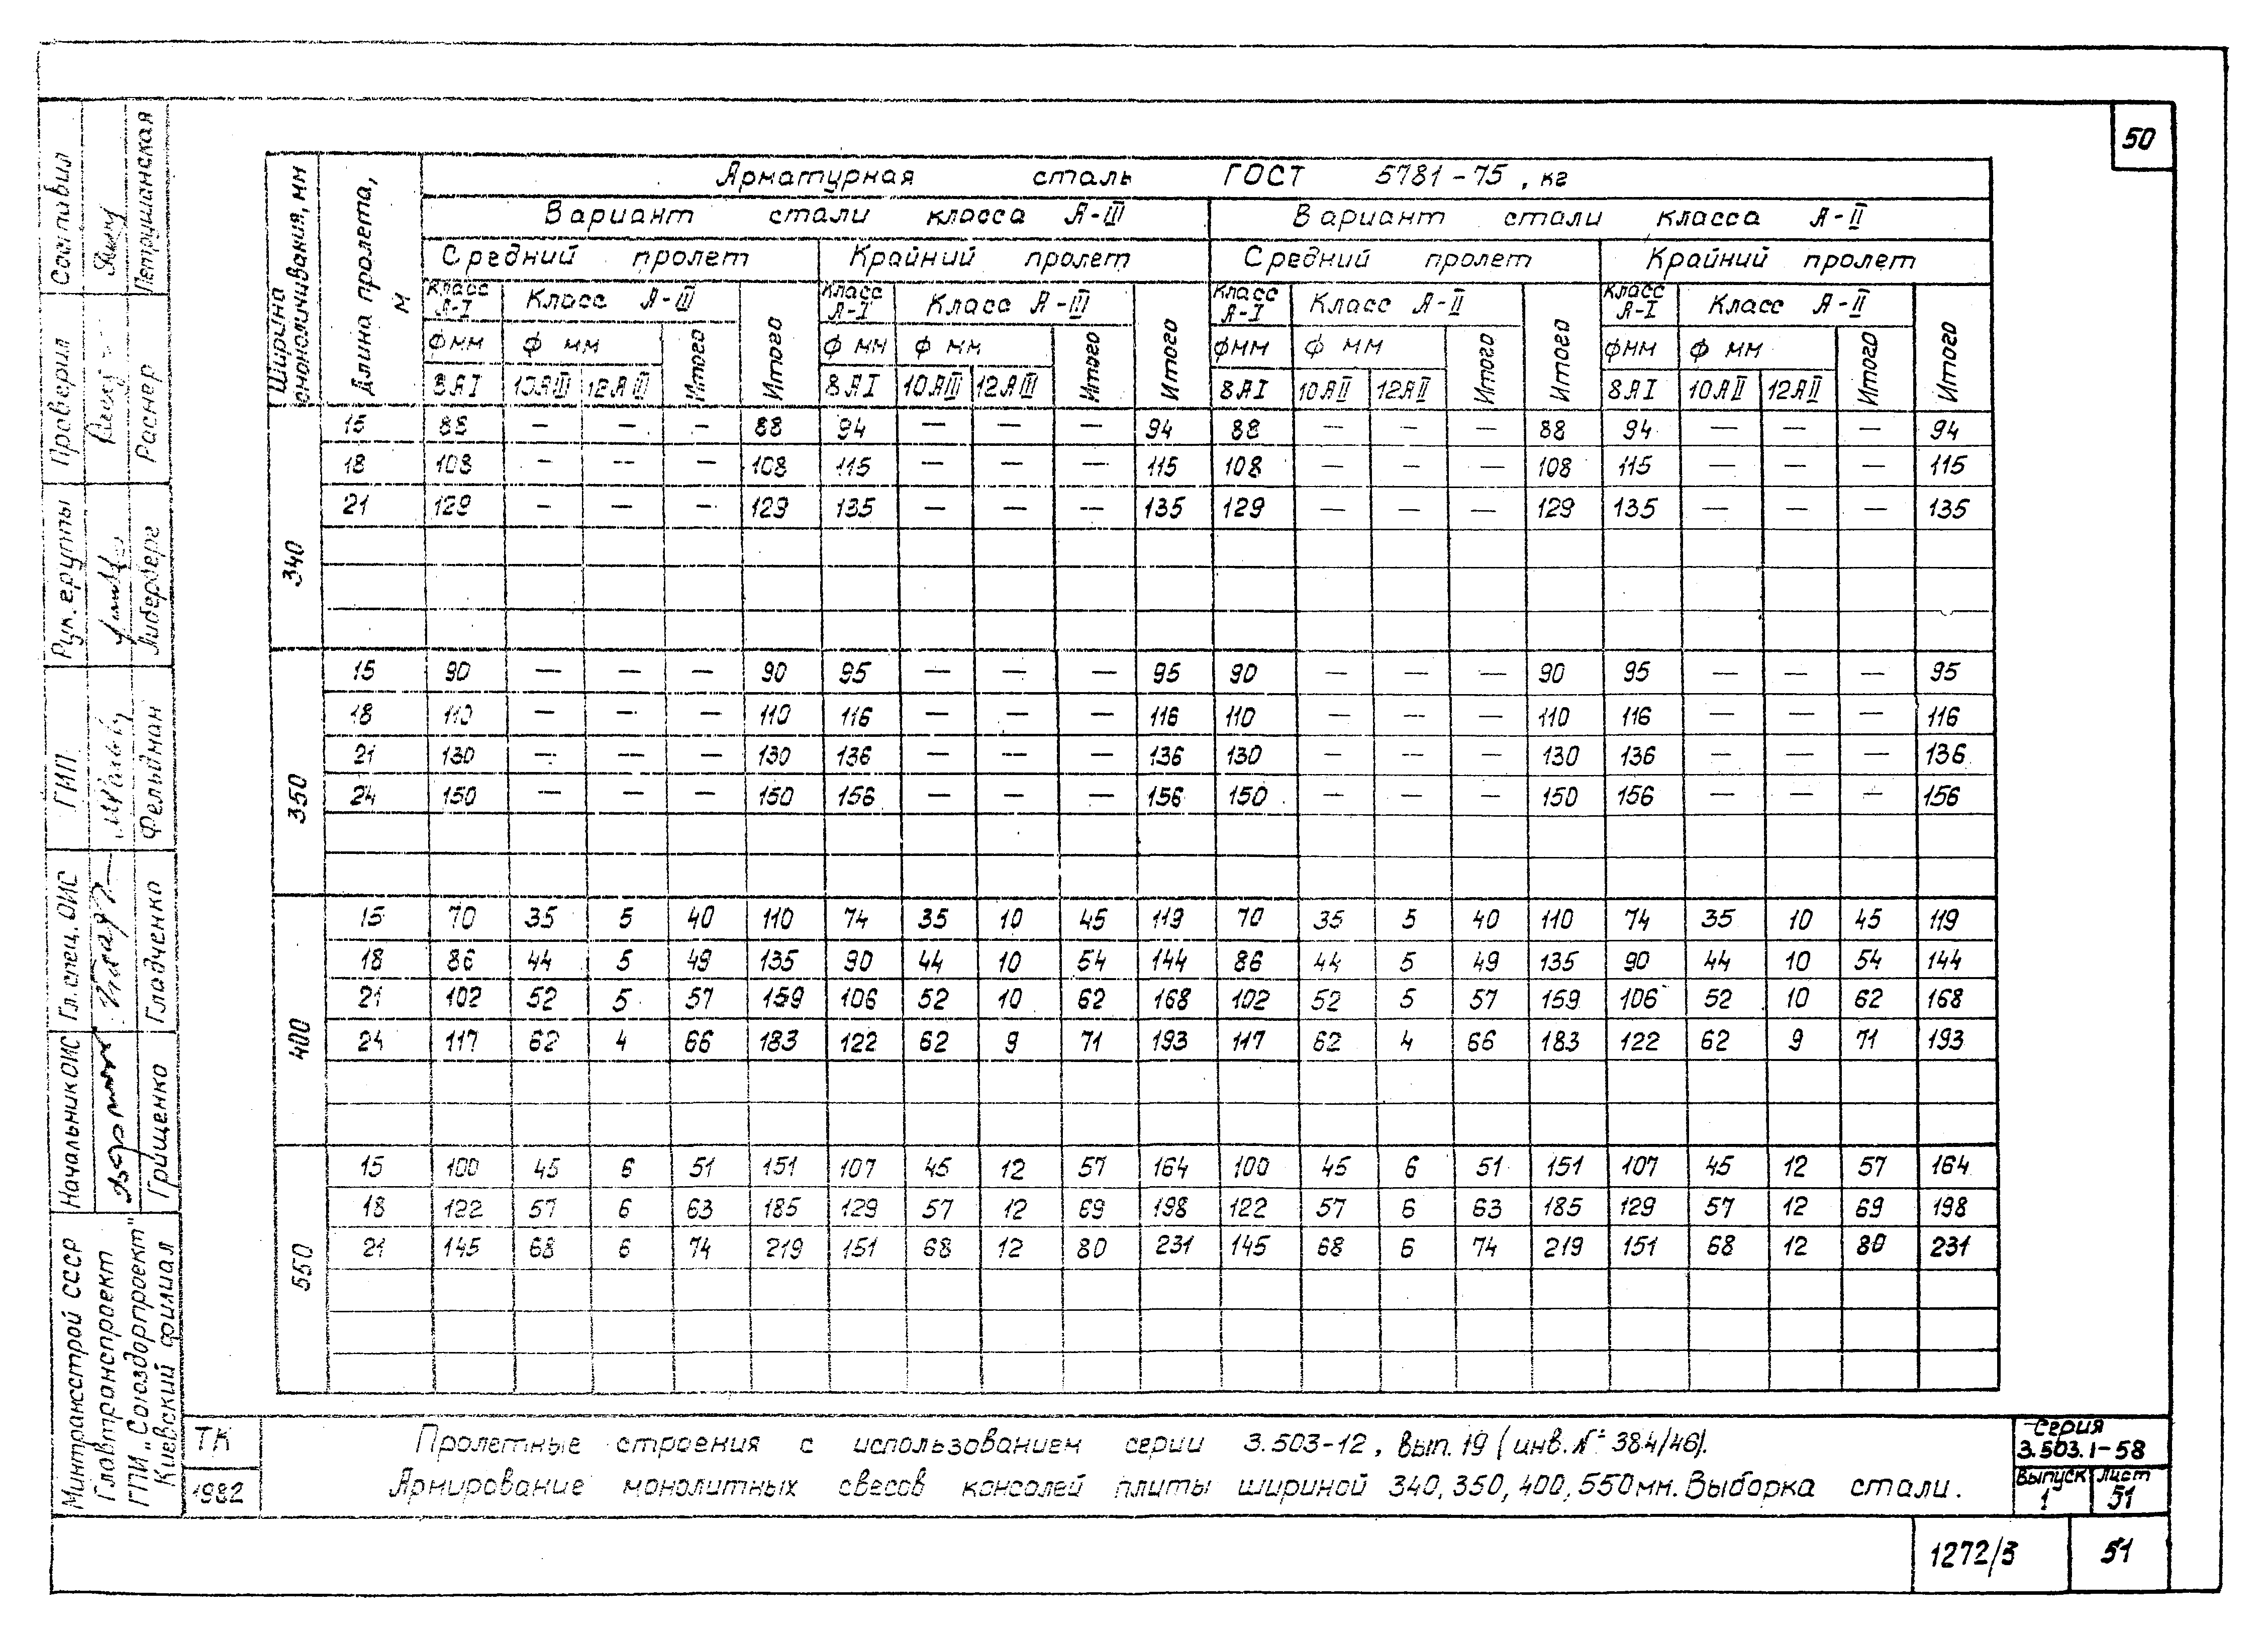 50
Ширина омоноличивания, мм
Длина пролета, м
Арматурная сталь ГОСТ 5781-75, кг
Вариант стали класса А-III Вариант стали класса А-II
Средний пролет Крайний пролет Средний пролет Крайний пролет
Класс А-I Класс А-III Итого Класс А-I Класс А-III Итого Класс А-I Класс А-II Итого Класс А-I Класс А-II Итого
ф мм ф мм Итого ф мм ф мм Итого ф мм ф мм Итого ф мм ф мм Итого
8АI 10АIII 12АIII 8АI 10АIII 12АIII 8АI 10АII 12АII 8АI 10АII 12АII
340
15 88 — — — 88 94 — — — 94 88 — — — 88 94 — — — 94
18 108 — — — 108 115 — — — 115 108 — — — 108 115 — — — 115
21 129 — — — 129 135 — — — 135 129 — — — 129 135 — — — 135
350
15 90 — — — 90 95 — — — 95 90 — — — 90 95 — — — 95
18 110 — — — 110 116 — — — 116 110 — — — 110 116 — — — 116
21 130 — — — 130 136 — — — 136 130 — — — 130 136 — — — 136
24 150 — — — 150 156 — — — 156 150 — — — 150 156 — — — 156
400
15 70 35 5 40 110 74 35 10 45 119 70 35 5 40 110 74 35 10 45 119
18 86 44 5 49 135 90 44 10 54 144 86 44 5 49 135 90 44 10 54 144
21 102 52 5 57 159 106 52 10 62 168 102 52 5 57 159 106 52 10 62 168
24 117 62 4 66 183 122 62 9 71 193 117 62 4 66 183 122 62 9 71 193
550
15 100 45 6 51 151 107 45 12 57 164 100 45 6 51 151 107 45 12 57 164
18 122 57 6 63 185 129 57 12 69 198 122 57 6 63 185 129 57 12 69 198
21 145 68 6 74 219 151 68 12 80 231 145 68 6 74 219 151 68 12 80 231
Составил Петрушанская
Проверил Раснер
Рук. группы Либерберг
ГИП Фельдман
Гл. спец. ОИС Гладченко
Начальник ОИС Грищенко
Минтрансстрой СССР
Главтранспроект
ГПИ „Союздорпроект"
Киевский филиал
ТК
1982
Пролетные строения с использованием серии 3.503-12, вып. 19 (инв. № 384/46).
Армирование монолитных свесов консолей плиты шириной 340, 350, 400, 550мм. Выборка стали.
Серия
3.503.1-58
Выпуск Лист
1 51
1272/3 51